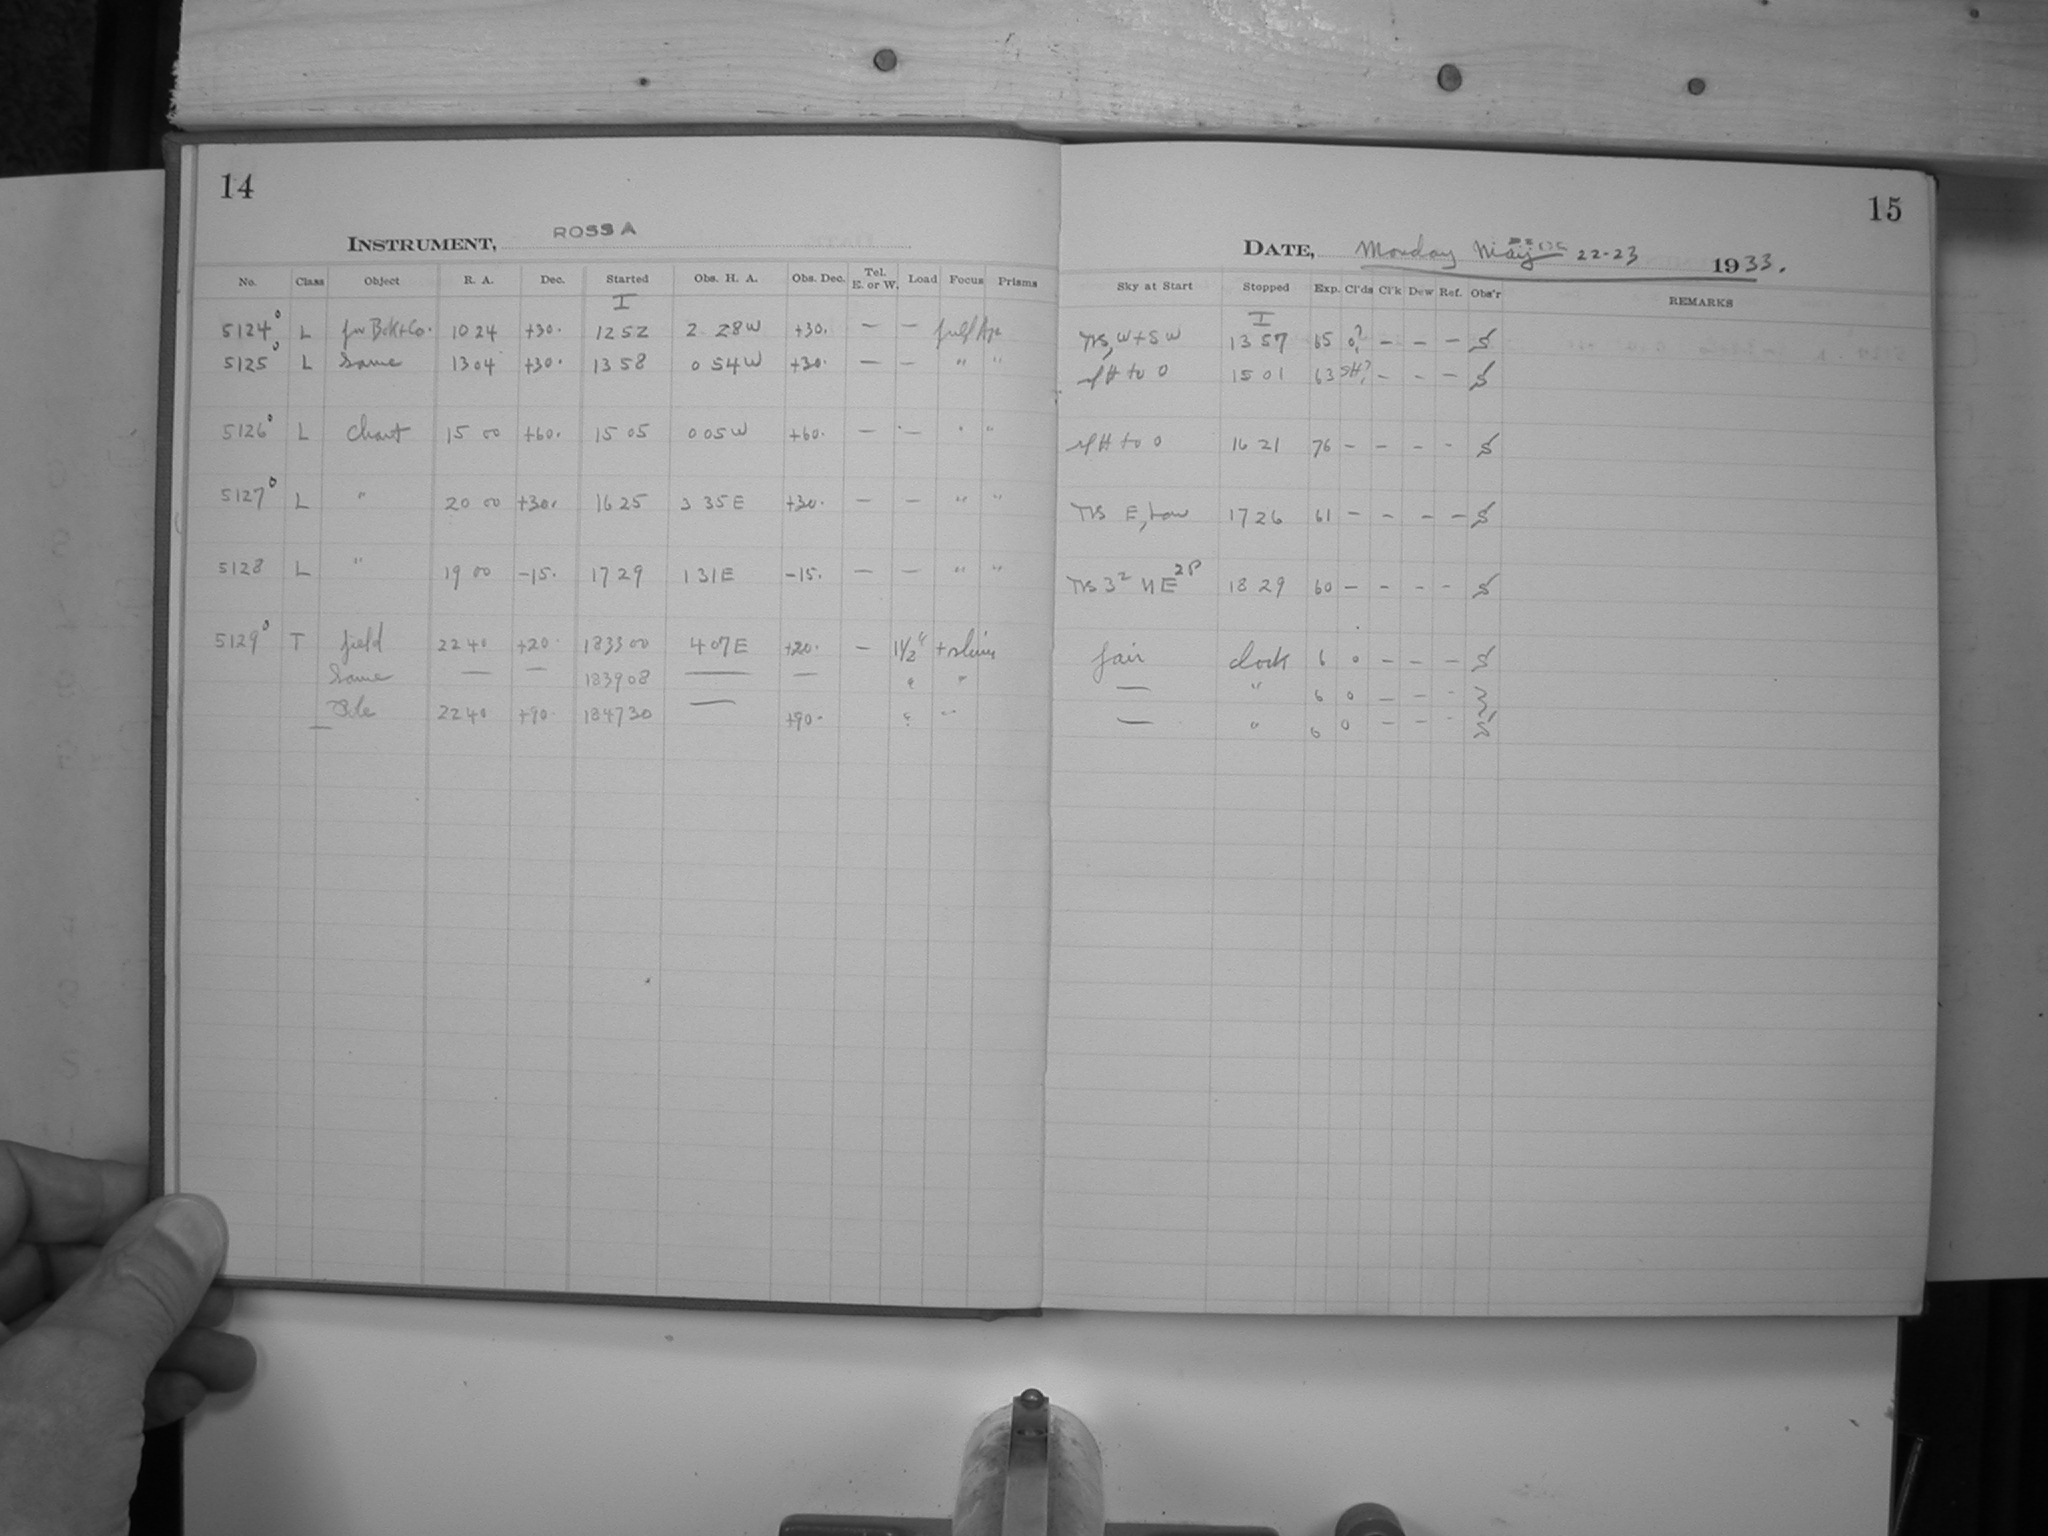 14
INSTRUMENT, ROSS A
No. Class Object R. A. Dec. Started Obs. H. A. Obs. Dec. Tel. E. or W. Load Focus Prisms
I
5124° L for Bok+Co. 10 24 +30. 12 52 2 28W +30. — —
5125° L Same 13 04 +30. 13 58 0 54W +30. — — " "
5126° L Chart 15 00 +60. 15 05 0 05W +60. — — " "
5127° L " 20 00 +30. 16 25 3 35E +30. — — " "
5128 L " 19 00 -15. 17 29 1 31E -15. — — " "
5129° T field 22 40 +20. 18 33 00 4 07E +20. — 1 1/2"
Same — — 18 39 08 — — " "
Pole 22 40 +90. 18 47 30 — +90. "
15
DATE, Monday May 22-23 1933.
Sky at Start Stopped Exp. Cl'ds Cl'k Dew Ref. Obs'r REMARKS
I
W+SW 13 57 65 0? — — — S
to 0 15 01 63 SH? — — — S
to 0 16 21 76 — — — — S
E, low 17 26 61 — — — — S
NE 18 29 60 — — — — S
fair clock 6 0 — — — S
— " 6 0 — — — S
— " 6 0 — — — S